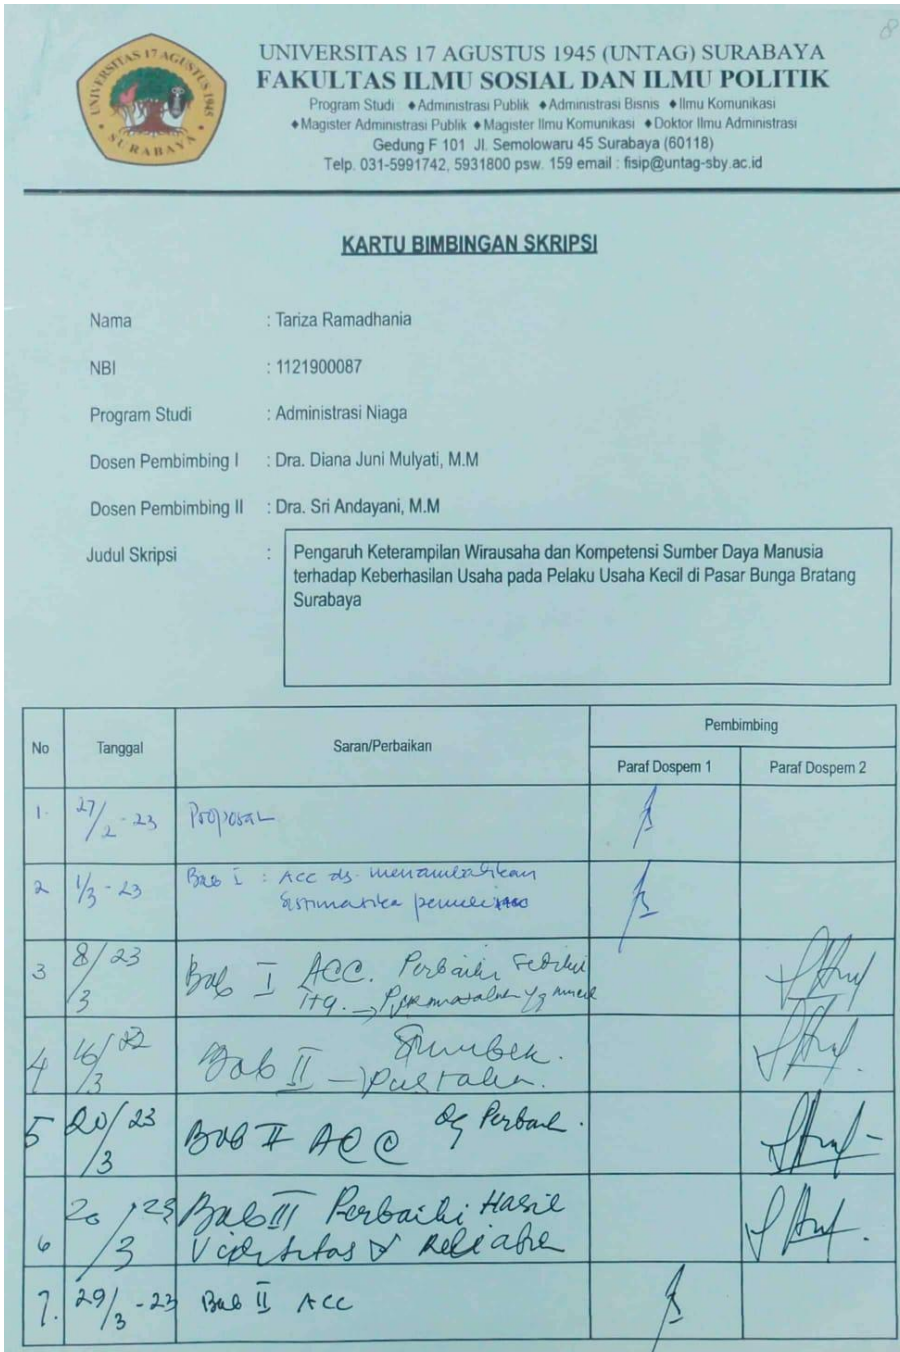 8
UNIVERSITAS 17 AGUSTUS 1945
SURABAYA
UNIVERSITAS 17 AGUSTUS 1945 (UNTAG) SURABAYA
FAKULTAS ILMU SOSIAL DAN ILMU POLITIK
Program Studi ◆Administrasi Publik ◆Administrasi Bisnis ◆Ilmu Komunikasi
◆Magister Administrasi Publik ◆Magister Ilmu Komunikasi ◆Doktor Ilmu Administrasi
Gedung F 101 Jl. Semolowaru 45 Surabaya (60118)
Telp. 031-5991742, 5931800 psw. 159 email : fisip@untag-sby.ac.id
KARTU BIMBINGAN SKRIPSI
Nama : Tariza Ramadhania
NBI : 1121900087
Program Studi : Administrasi Niaga
Dosen Pembimbing I : Dra. Diana Juni Mulyati, M.M
Dosen Pembimbing II : Dra. Sri Andayani, M.M
Judul Skripsi : Pengaruh Keterampilan Wirausaha dan Kompetensi Sumber Daya Manusia
terhadap Keberhasilan Usaha pada Pelaku Usaha Kecil di Pasar Bunga Bratang
Surabaya
No Tanggal Saran/Perbaikan Pembimbing
Paraf Dospem 1 Paraf Dospem 2
1. 27/2-23 Proposal
2 1/3-23 Bab I : ACC dg. menambahkan
Sistimatika
3 8/3 23 Bab I ACC. Perbaiki
ttg. → yg
4 16/3 Bab II →
5 20/3 23 Bab II ACC dg
6 20/3 23 Bab III Perbaiki Hasil
7. 29/3-23 Bab II ACC